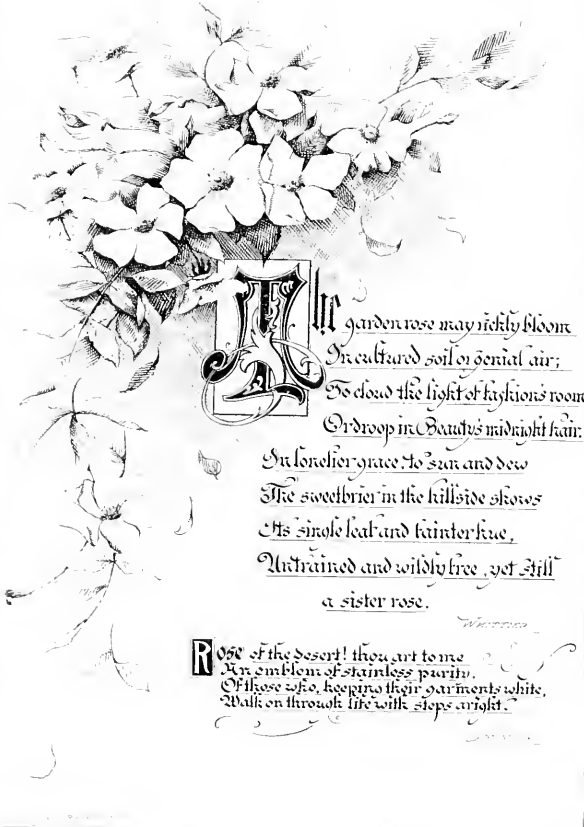 The garden rose may richly bloom
In cultured soil or genial air;
To cloud the light of fashion's room
Or droop in Beauty's midnight hair.
In lonelier grace, to sun and dew
The sweetbrier in the hillside shows
Its single leaf and fainter hue,
Untrained and wildly free, yet still
a sister rose.
WHITTIER
Rose of the desert! thou art to me
An emblem of stainless purity.
Of those who, keeping their garments white,
Walk on through life with steps aright.